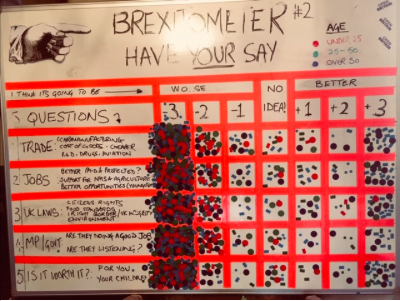 BREXTOMETER #2
HAVE YOUR SAY
AGE
UNDER 25
25-50
OVER 50
I THINK ITS GOING TO BE
WO SE
NO IDEA!
BETTER
5 QUESTIONS
-3 -2 -1 +1 +2 +3
1 TRADE: CAR MANUFACTURING
COST OF GOODS - CHEAPER
R&D. DRUGS. AVIATION
2 JOBS BETTER PAID & PROTECTED?
SUPPORT FOR NHS & AGRICULTURE
BETTER OPPORTUNITIES
3 UK LAWS: CITIZENS RIGHTS
FOOD STANDARDS
IRISH BORDER/
ENVIRONMENT
4 MP/GOVT. ARE THEY DOING A GOOD JOB
ARE THEY LISTENING?
5 IS IT WORTH IT? FOR YOU.
YOUR CHILDREN